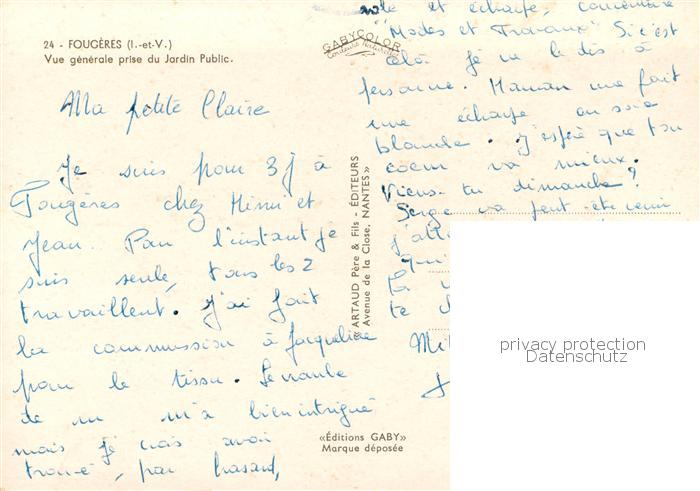 24 - FOUGÈRES (I.-et-V.)
Vue générale prise du Jardin Public.
GABYCOLOR
Couleurs Naturelles
Ma petite Claire
Je suis pour 3 j à
Fougères chez Mimi et
Jean. Pour l'instant je
suis seule, tous les 2
travaillent. J'ai fait
la commission à Jacqueline
pour le tissu.
de m'a bien intriguée
mais je crois avoir
trouvé, par hasard,
et écharpe,
"Modes et Travaux" Si c'est
celà. Je ne le dis à
personne. Maman me fait
une écharpe en soie
blanche. J'espère que ton
coeur va mieux.
Viens-tu dimanche?
Serge va peut-être venir
te
«ARTAUD Père & Fils - ÉDITEURS
Avenue de la Close, NANTES»
«Éditions GABY»
Marque déposée
privacy protection
Datenschutz